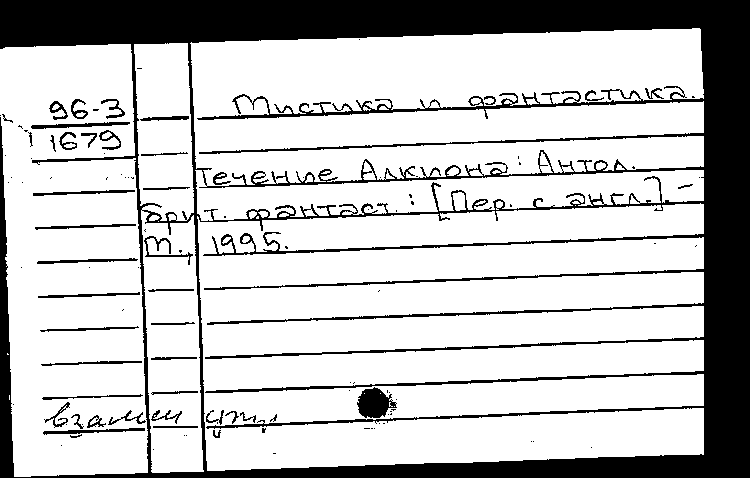 96-3 Мистика и фантастика.
1679
Течение Алкиона : Антол.
брит. фантаст. : [Пер. с англ.]. –
М., 1995.
взамен утр.